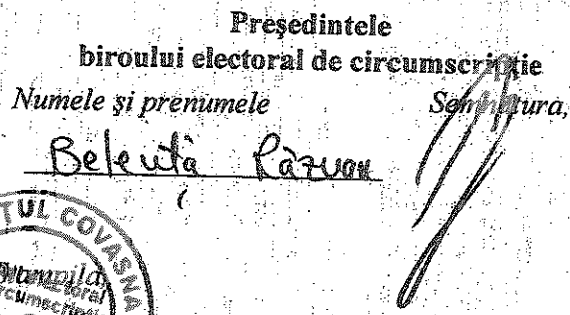 Preşedintele
biroului electoral de circumscripţie
Numele şi prenumele Semnătura,
Beleuță Răzvan
Ştampila,